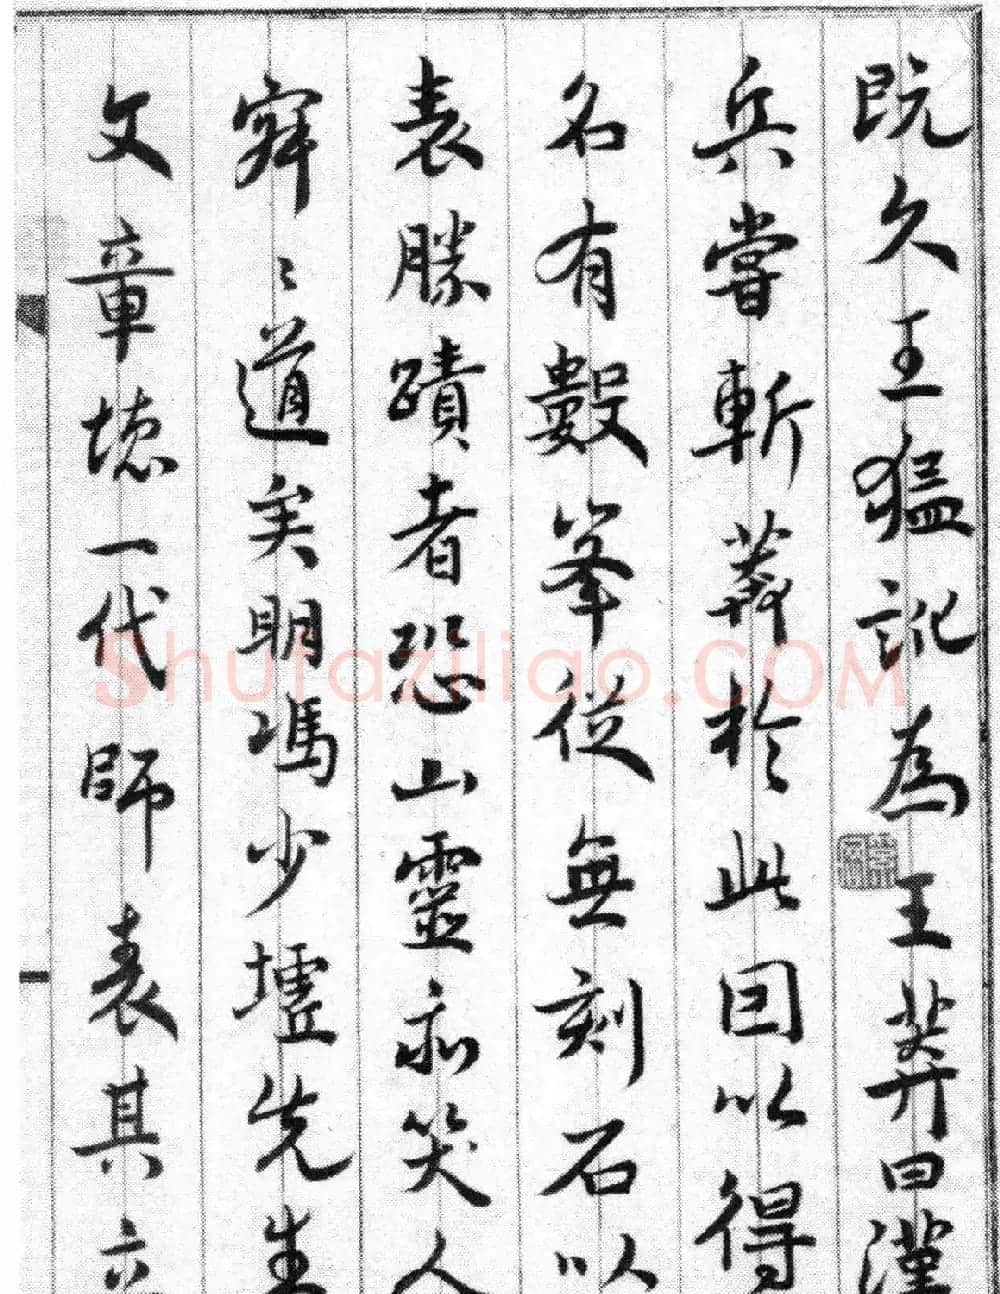 既久王猛訛為王莽曰漢
兵嘗斬莽於此因以得
名有數峯從無刻石以
表勝蹟者恐山靈亦笑人
寂〻道矣明馮少墟先生
文章德一代師表其六
Shufaziliao.COM